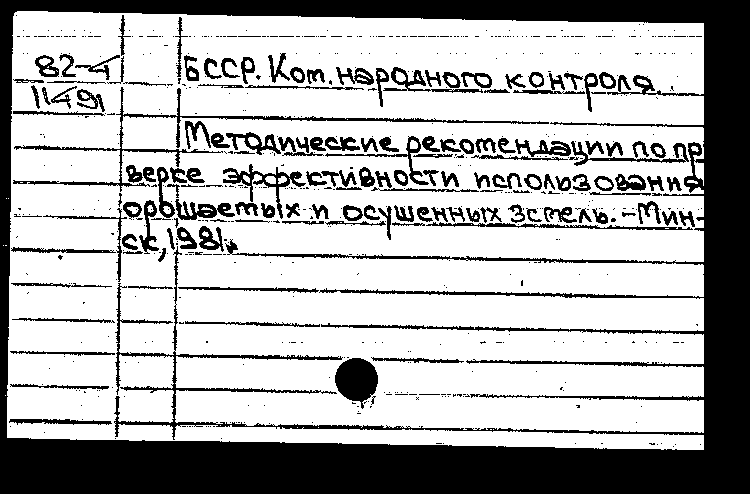 82-4 БССР. Ком. народного контроля.
11491
Методические рекомендации по про
верке эффективности использования
орошаемых и осушенных земель. - Мин-
ск, 1981.